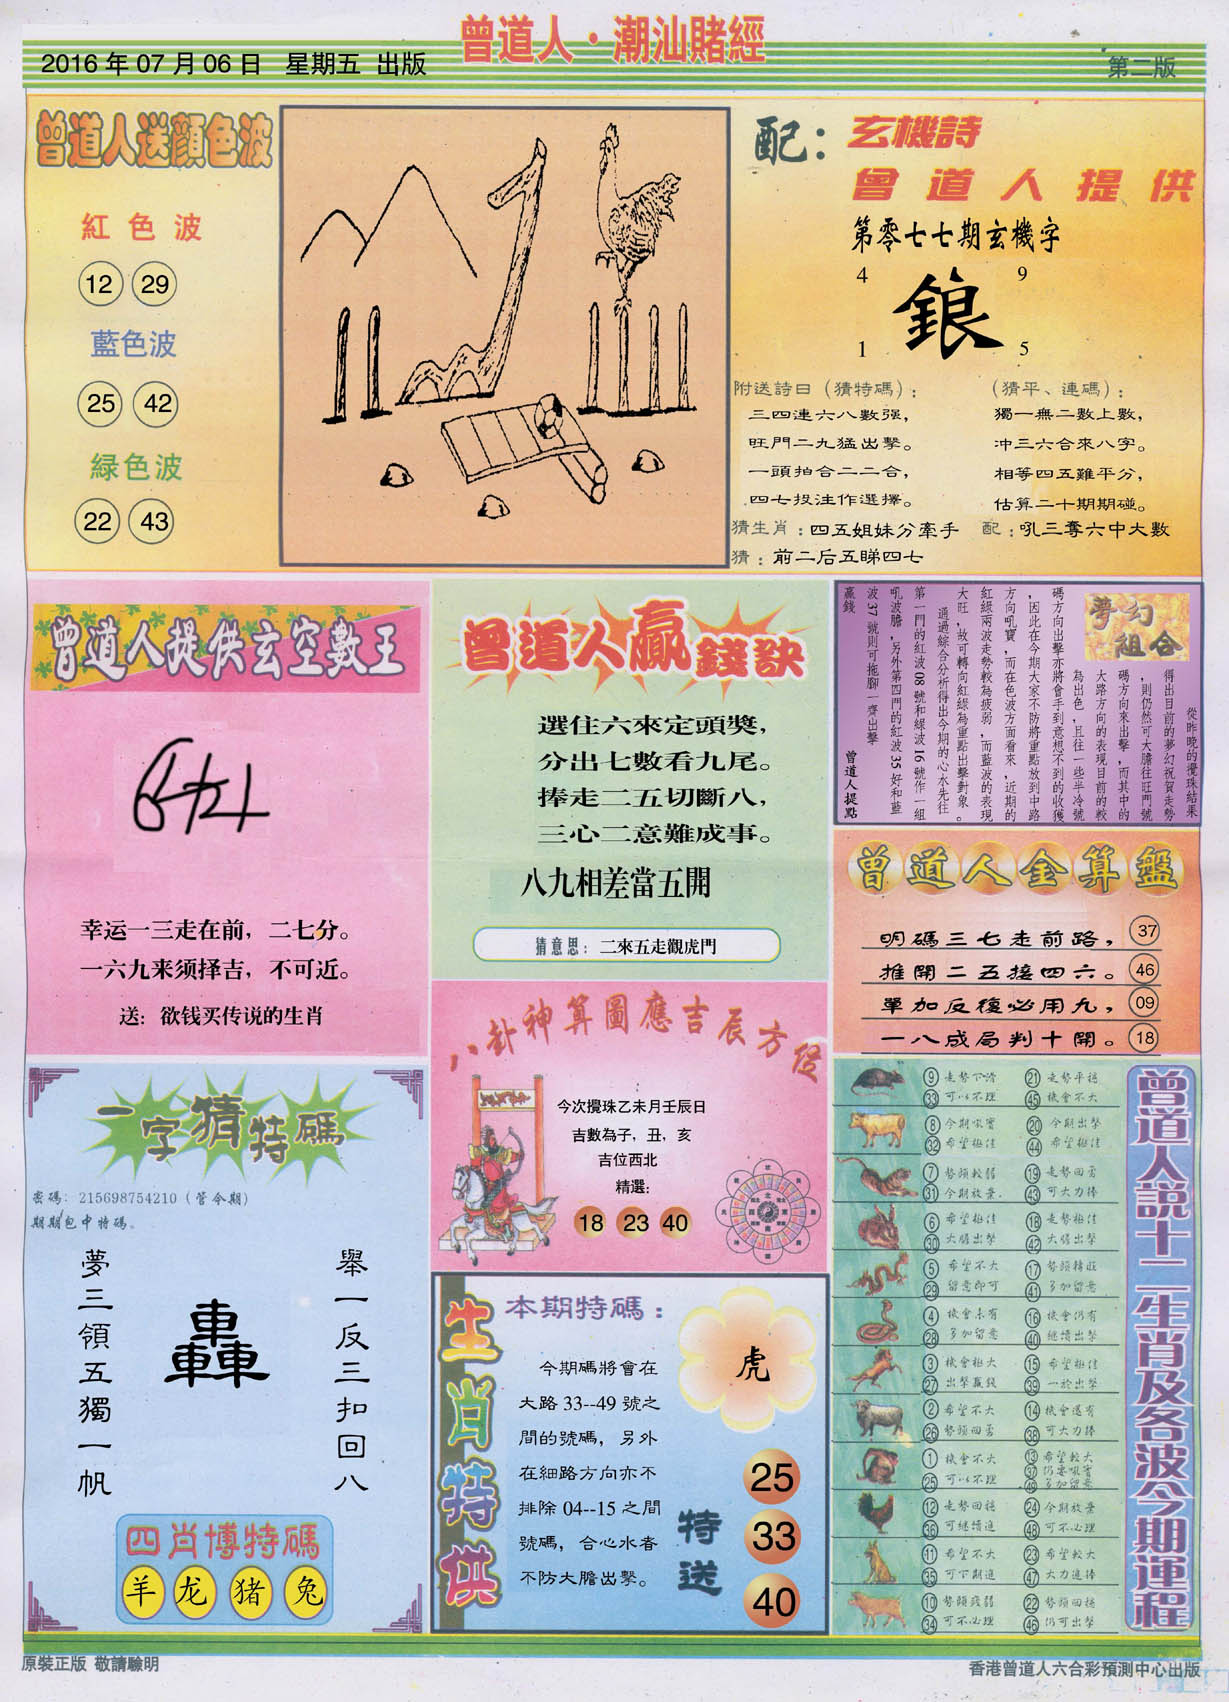 2016 年 07 月 06 日 星期五 出版
曾道人·潮汕賭經
第二版
曾道人送顏色波
紅色波
12 29
藍色波
25 42
緑色波
22 43
配：玄機詩
曾道人提供
第零七七期玄機字
4 9
鋃
1 5
附送詩曰（猜特碼）：
三四連六八數强，
旺門二九猛出擊。
一頭拍合二二合，
四七投注作選擇。
（猜平、連碼）：
獨一無二數上數，
冲三六合來八字。
相等四五難平分，
估算二十期期碰。
猜生肖：四五姐妹分牽手
配：吼三奪六中大數
猜：前二后五睇四七
曾道人提供玄空數王
幸运一三走在前，二七分。
一六九来须择吉，不可近。
送：欲钱买传说的生肖
曾道人贏錢訣
選住六來定頭獎，
分出七數看九尾。
捧走二五切斷八，
三心二意難成事。
八九相差當五開
猜意思：二來五走觀虎門
夢幻組合
從昨晚的攪珠結果
得出目前的夢幻祝賀走勢
，則仍然可大膽往旺門號
碼方向來出擊，而其中的
大路方向的表現目前的較
為出色，且往一些半冷號
碼方向出擊亦將會手到意想不到的收獲
，因此在今期大家不防將重點放到中路
方向吼寶，而在色波方面看來，近期的
紅綠兩波走勢較為疲弱，而藍波的表現
大旺，故可轉向紅綠為重點出擊對象。
通過綜合分析得出今期的心水先往
第一門的紅波 08 號和緑波 16 號作一組
吼波膽，另外第四門的紅波 35 好和藍
波 37 號則可拖腳一齊出擊
贏錢
曾道人提點
曾道人金算盤
明碼三七走前路， 37
推開二五接四六。 46
單加反復必用九， 09
一八成局判十開。 18
一字猜特碼
密碼：215698754210（管令期）
期期包中特碼。
舉一反三扣回八
轟
夢三領五獨一帆
四肖博特碼
羊 龙 猪 兔
八卦神算圖應吉辰方位
今次攪珠乙未月壬辰日
吉數為子，丑，亥
吉位西北
精選：
18 23 40
生肖特供
本期特碼：
虎
今期碼將會在
大路 33--49 號之
間的號碼，另外
在細路方向亦不
排除 04--15 之間
號碼，合心水者
不防大膽出擊。
特送
25
33
40
曾道人説十二生肖及各波今期運程
9 走勢下滑 21 走勢平穩
33 可以不理 45 機會不大
8 今期吼實 20 今期出擊
32 希望極佳 44 希望極佳
7 勢頭較弱 19 走勢回勇
31 今期放棄 43 可大力捧
6 希望極佳 18 走勢極佳
30 大膽出擊 42 大膽出擊
5 希望不大 17 勢頭轉旺
29 留意即可 41 多加留意
4 機會未有 16 機會仍有
28 多加留意 40 繼續出擊
3 機會極大 15 希望極佳
27 出擊贏錢 39 一於出擊
2 希望不大 14 機會還有
26 勢頭回勇 38 可大力捧
1 機會不大 13 希望較大
25 可以不理 37 仍要吼實
49 多加留意
12 走勢回穩 24 今期放棄
36 可繼續追 48 可不必理
11 希望不大 23 希望較大
35 可下期追 47 大力追捧
10 勢頭疲弱 22 勢頭回穩
34 可不必理 46 仍可出擊
原裝正版 敬請驗明
香港曾道人六合彩預測中心出版